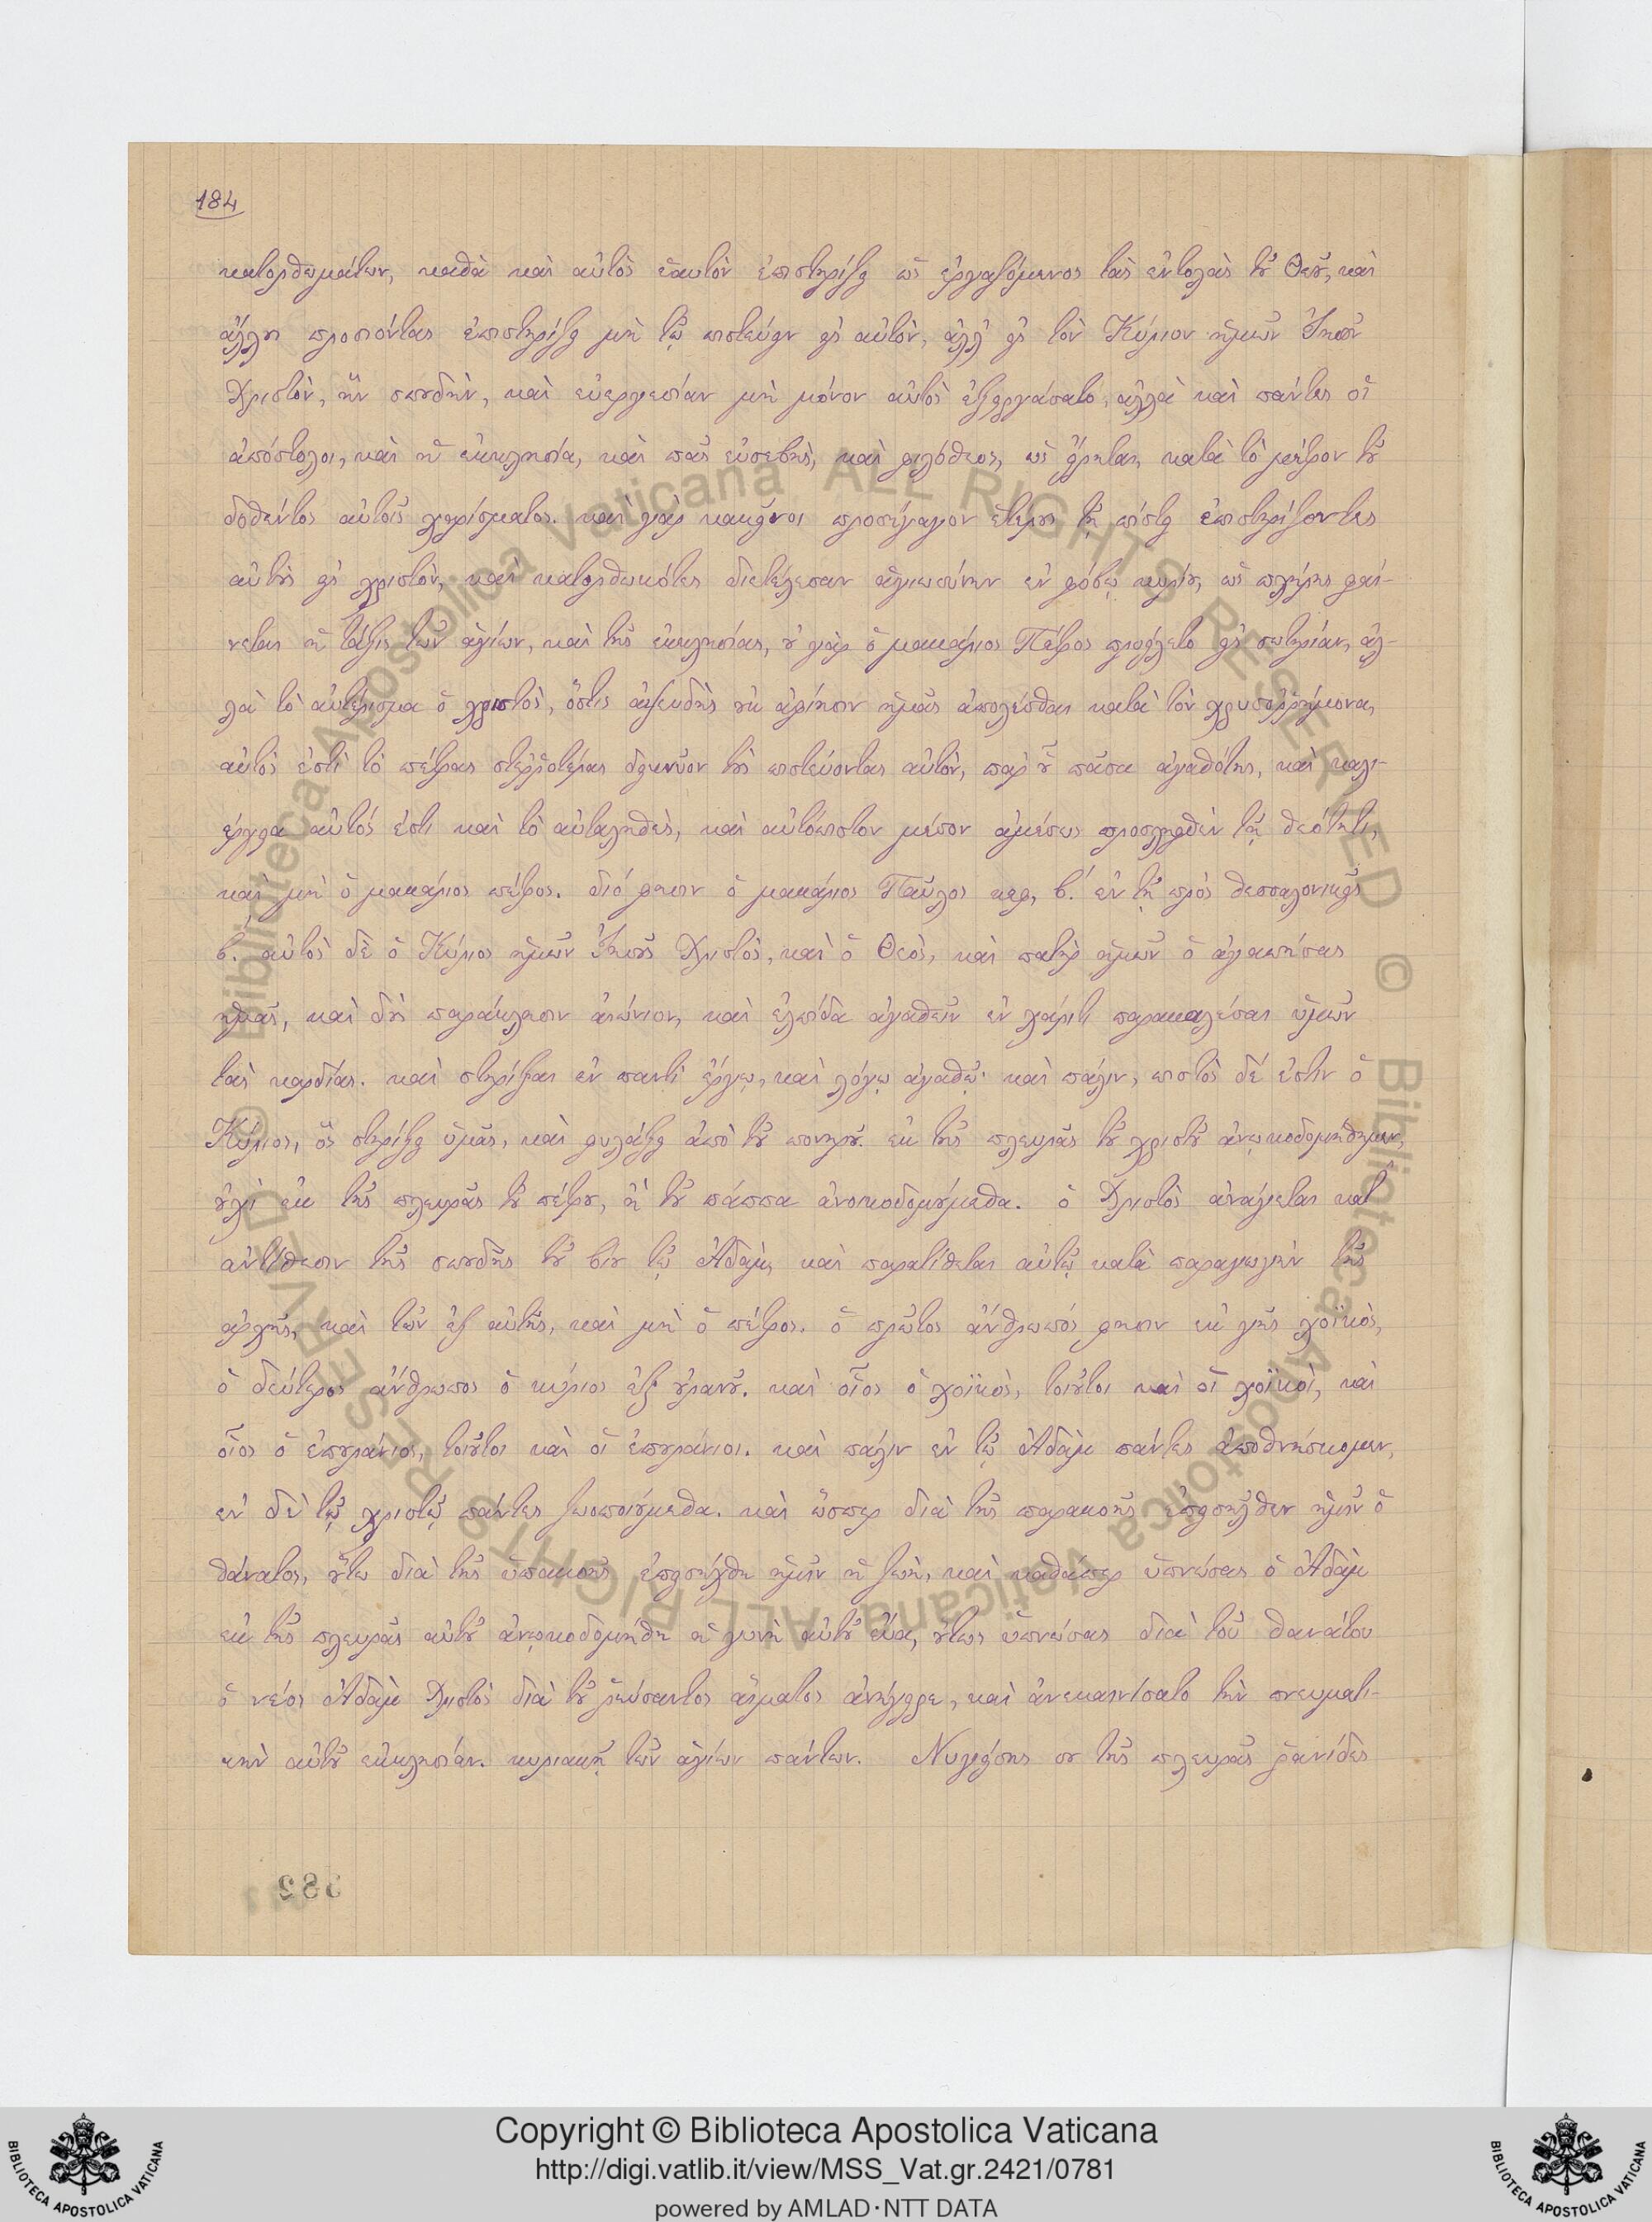 184
κατορθωμάτων, καθὰ καὶ αὐτὸς ἑαυτὸν ἐπιστηρίξῃ ὡς ἐργαζόμενος τὰς ἐντολὰς τοῦ Θεοῦ, καὶ
ἄλλους προσιόντας ἐπιστηρίξῃ μὴ τῷ πιστεύειν εἰς αὐτὸν, ἀλλ' εἰς τὸν Κύριον ἡμῶν Ἰησοῦν
Χριστὸν, ἣν σπουδὴν, καὶ εὐεργεσίαν μὴ μόνον αὐτὸς ἐξειργάσατο, ἀλλὰ καὶ πάντες οἱ
ἀπόστολοι, καὶ ἡ ἐκκλησία, καὶ πᾶς εὐσεβὴς, καὶ φιλόθεος, ὡς εἴρηται, κατὰ τὸ μέτρον τοῦ
δοθέντος αὐτοῖς χαρίσματος. καὶ γὰρ κακεῖνοι προσήγαγον ἑτέρους τῇ πίστει ἐπιστηρίξοντες
αὐτοὺς εἰς χριστὸν, καὶ κατορθωκότες διετέλεσαν ἁγιωσύνην ἐν φόβῳ κυρίου, ὡς πλήρης φαί-
νεται ἡ τάξις τῶν ἁγίων, καὶ τῆς ἐκκλησίας, οὐ γὰρ ὁ μακάριος Πέτρος προφείλετο εἰς σωτηρίαν, ἀλ-
λὰ τὸ αὐτέρισμα ὁ χριστὸς, ὅστις ἀψευδὴς οὐκ ἀφίησιν ἡμᾶς ἀπολέσθαι κατὰ τὸν χρυσορρήμονα,
αὐτὸς ἐστὶ τὸ πέτρας στερροτέρας δεικνῦον τοὺς πιστεύοντας αὐτὸν, παρ' οὗ πᾶσα ἀγαθότης, καὶ καλι-
έργεια αὐτός ἐστι καὶ τὸ αὐταληθὲς, καὶ αὐτόπιστον μέσον ἀμέσως προσληφθὲν τῇ θεότητι,
καὶ μὴ ὁ μακάριος πέτρος. διό φησιν ὁ μακάριος Παῦλος κεφ. β΄. ἐν τῇ πρὸς θεσσαλονικεῖς
β΄. αὐτὸς δὲ ὁ Κύριος ἡμῶν Ἰησοῦς Χριστὸς, καὶ ὁ Θεὸς, καὶ πατὴρ ἡμῶν ὁ ἀγαπήσας
ἡμᾶς, καὶ δοὺς παράκλησιν αἰώνιον, καὶ ἐλπίδα ἀγαθὴν ἐν χάριτι παρακαλέσαι ὑμῶν
τὰς καρδίας. καὶ στηρίξαι ἐν παντὶ ἔργῳ, καὶ λόγῳ ἀγαθῷ· καὶ πάλιν, πιστὸς δέ ἐστιν ὁ
Κύριος, ὃς στηρίξει ὑμᾶς, καὶ φυλάξει ἀπὸ τοῦ πονηροῦ. ἐκ τῆς πλευρᾶς τοῦ χριστοῦ ἀνῳκοδομήθημεν,
οὐχὶ ἐκ τῆς πλευρᾶς τοῦ πέτρου, ἢ τοῦ πάππα ἀνοικοδομούμεθα. ὁ Χριστὸς ἀνάγεται κατ'
ἀντίθεσιν τῆς σπουδῆς τοῦ βίου τῷ Ἀδὰμ, καὶ παρατίθεται αὐτῷ κατὰ παραγωγὴν τῆς
ἀρχῆς, καὶ τῶν ἐξ αὐτῆς, καὶ μὴ ὁ πέτρος. ὁ πρῶτος ἄνθρωπός φησιν ἐκ γῆς χοϊκὸς,
ὁ δεύτερος ἄνθρωπος ὁ κύριος ἐξ οὐρανοῦ. καὶ οἷος ὁ χοϊκὸς, τοιοῦτοι καὶ οἱ χοϊκοὶ, καὶ
οἷος ὁ ἐπουράνιος, τοιοῦτοι καὶ οἱ ἐπουράνιοι. καὶ πάλιν ἐν τῷ Ἀδὰμ πάντες ἀποθνήσκομεν,
ἐν δὲ τῷ χριστῷ πάντες ζωοποιούμεθα. καὶ ὥσπερ διὰ τῆς παρακοῆς ἐπεισῆλθεν ἡμῖν ὁ
θάνατος, οὕτω διὰ τῆς ὑπακοῆς ἐπεισήχθη ἡμῖν ἡ ζωὴ, καὶ καθάπερ ὑπνώσας ὁ Ἀδὰμ
ἐκ τῆς πλευρᾶς αὐτοῦ ἀνῳκοδομήθη ἡ γυνὴ αὐτοῦ εὔα, οὕτως ὑπνώσας διὰ τοῦ θανάτου
ὁ νέος Ἀδὰμ Χριστὸς διὰ τοῦ ῥεύσαντος αἵματος ἀνήγειρε, καὶ ἀνεκαινίσατο τὴν πνευματι-
κὴν αὐτοῦ ἐκκλησίαν. κυριακῇ τῶν ἁγίων πάντων. Νυγείσης σου τῆς πλευρᾶς ῥανίδες
Copyright © Biblioteca Apostolica Vaticana
http://digi.vatlib.it/view/MSS_Vat.gr.2421/0781
powered by AMLAD·NTT DATA